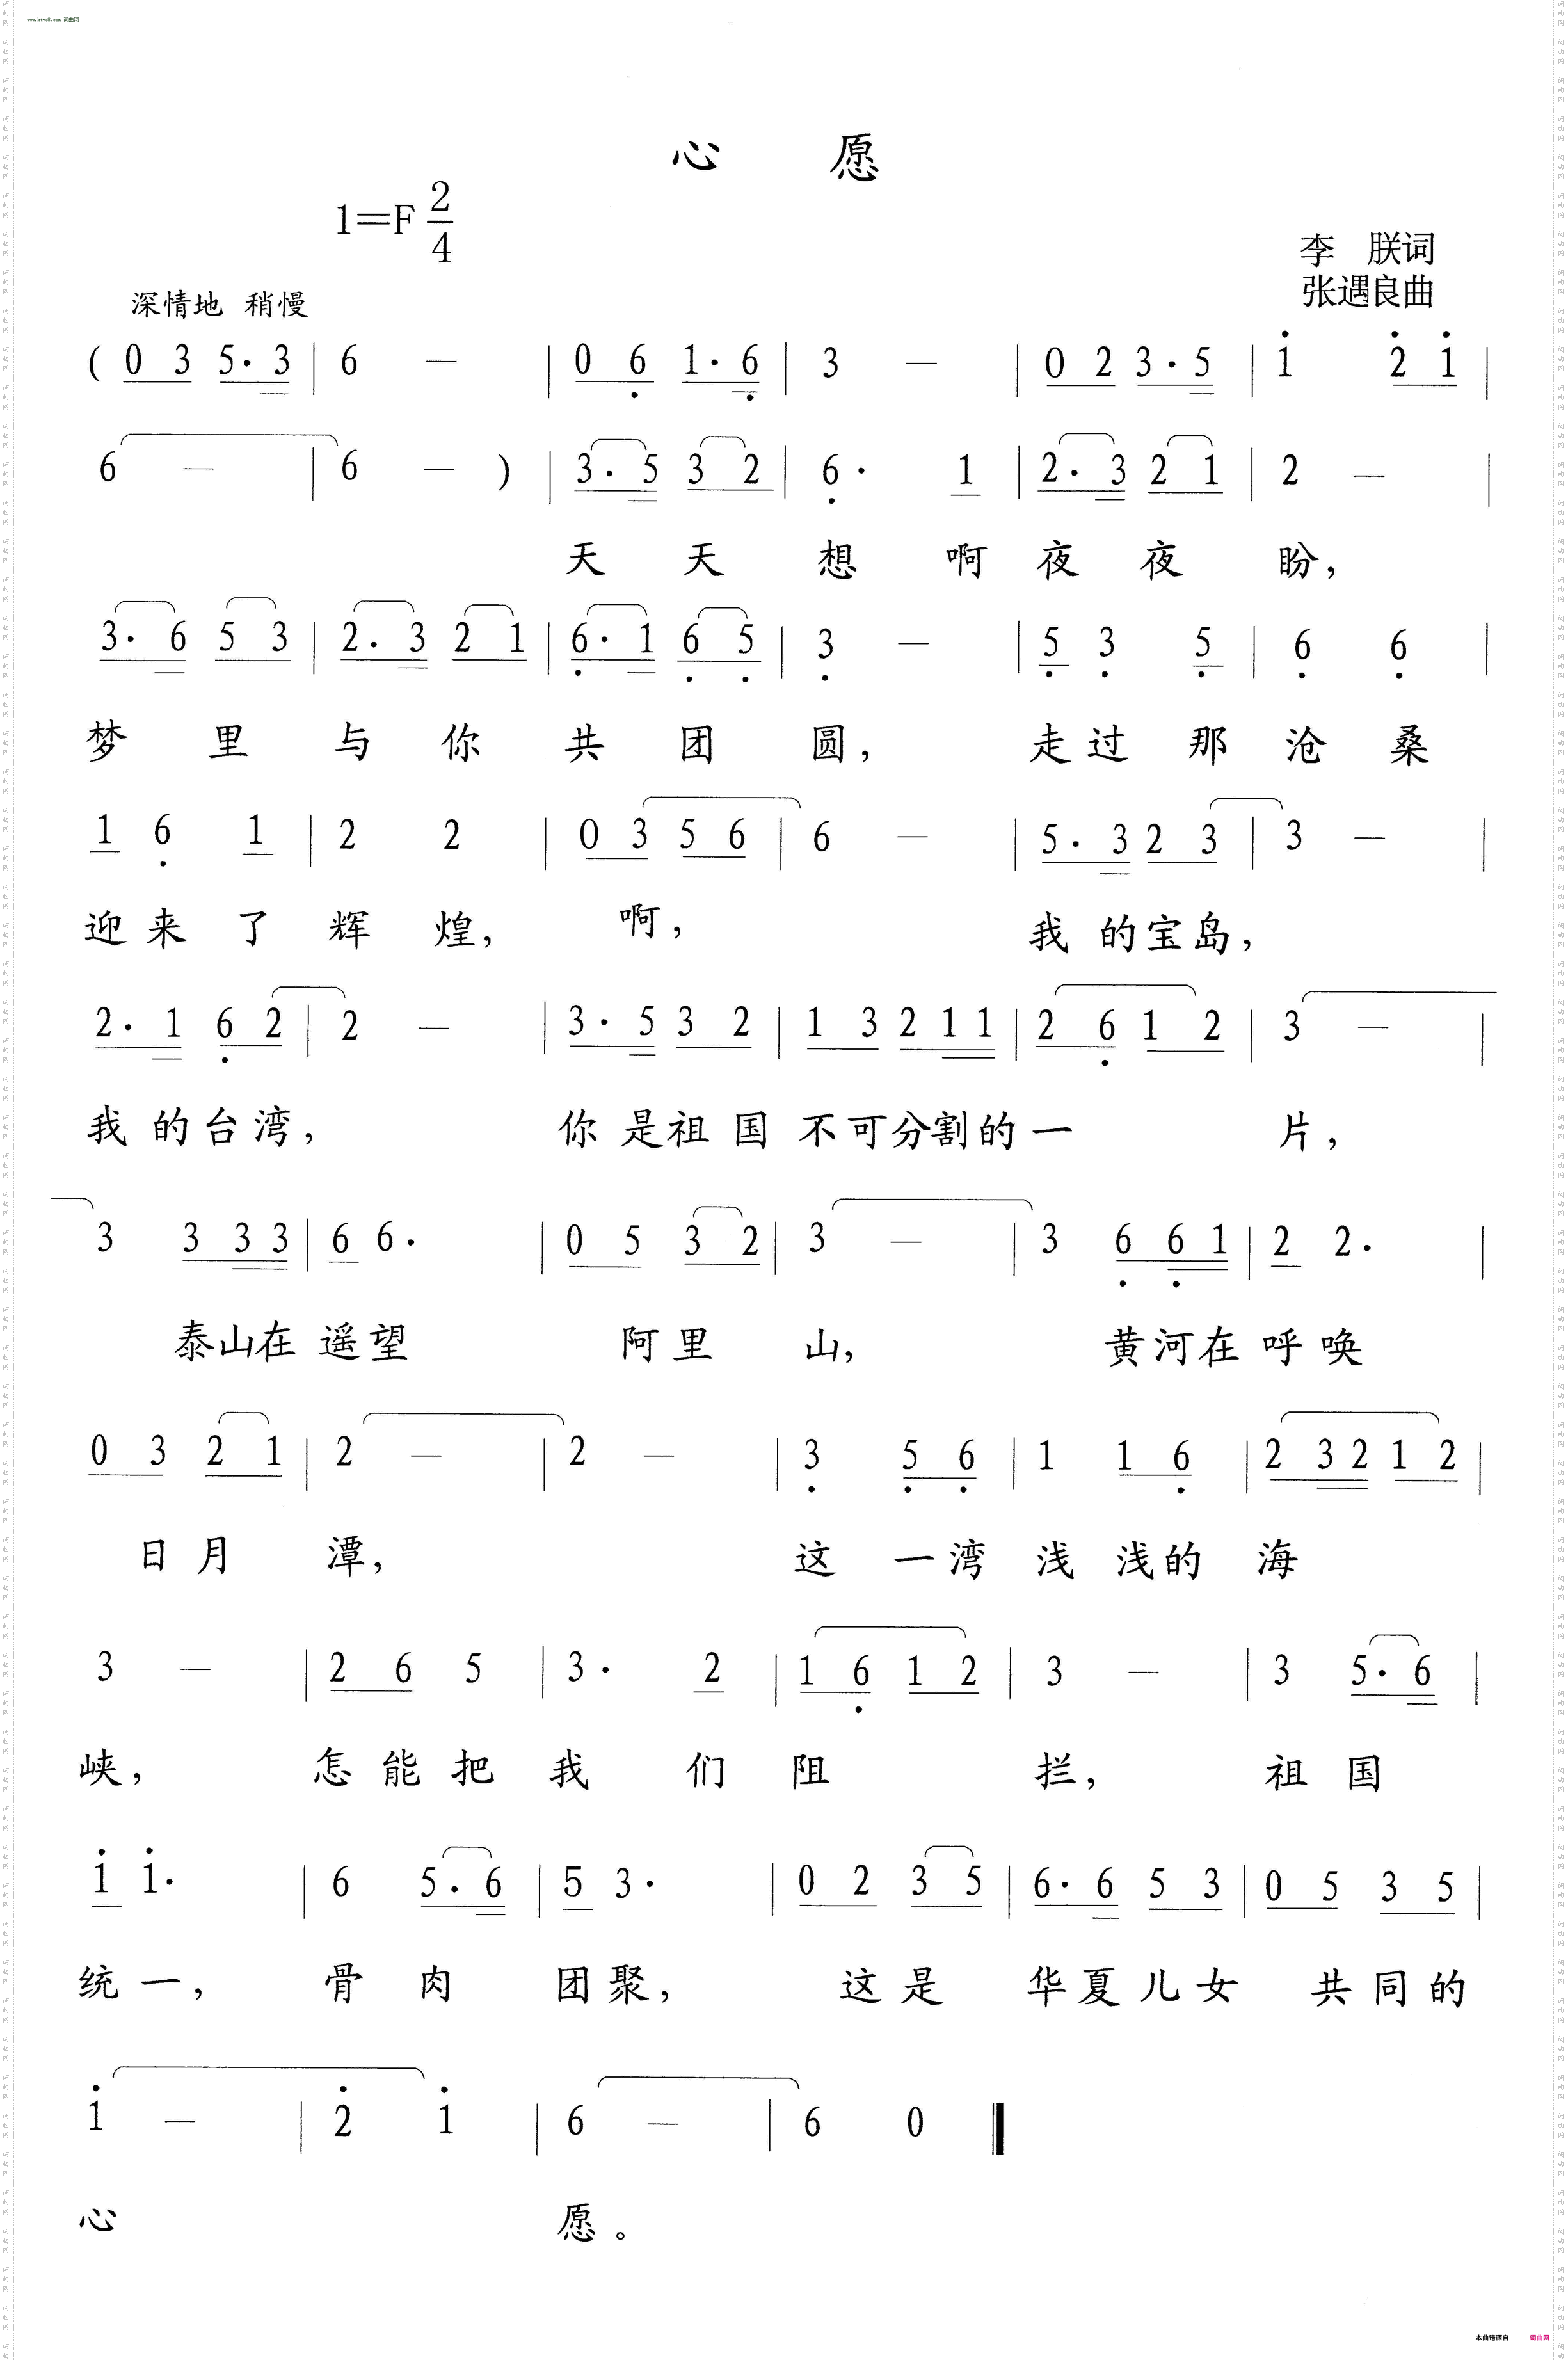 www.ktvc8.com 词曲网
心 愿
1=F 2/4
李 朕词
张遇良曲
深情地 稍慢
( 0 3 5· 3 | 6 — | 0 6̣ 1· 6̣ | 3 — | 0 2 3· 5 | i 2̇ i |
6 — | 6 — ) | 3· 5 3 2 | 6̣· 1 | 2· 3 2 1 | 2 — |
天 天 想 啊 夜 夜 盼,
3· 6 5 3 | 2· 3 2 1 | 6̣· 1 6̣ 5̣ | 3̣ — | 5̣ 3̣ 5̣ | 6̣ 6̣ |
梦 里 与 你 共 团 圆, 走 过 那 沧 桑
1 6̣ 1 | 2 2 | 0 3 5 6 | 6 — | 5· 3 2 3 | 3 — |
迎 来 了 辉 煌, 啊, 我 的 宝 岛,
2· 1 6̣ 2 | 2 — | 3· 5 3 2 | 1 3 2 1 1 | 2 6̣ 1 2 | 3 — |
我 的 台 湾, 你 是 祖 国 不 可 分 割 的 一 片,
3 3 3 3 | 6 6· | 0 5 3 2 | 3 — | 3 6̣ 6̣ 1 | 2 2· |
泰 山 在 遥 望 阿 里 山, 黄 河 在 呼 唤
0 3 2 1 | 2 — | 2 — | 3̣ 5̣ 6̣ | 1 1 6̣ | 2 3 2 1 2 |
日 月 潭, 这 一 湾 浅 浅 的 海
3 — | 2 6 5 | 3· 2 | 1 6̣ 1 2 | 3 — | 3 5· 6 |
峡, 怎 能 把 我 们 阻 拦, 祖 国
i i· | 6 5· 6 | 5 3· | 0 2 3 5 | 6· 6 5 3 | 0 5 3 5 |
统 一, 骨 肉 团 聚, 这 是 华 夏 儿 女 共 同 的
i — | 2̇ i | 6 — | 6 0 ‖
心 愿。
本曲谱源自 词曲网